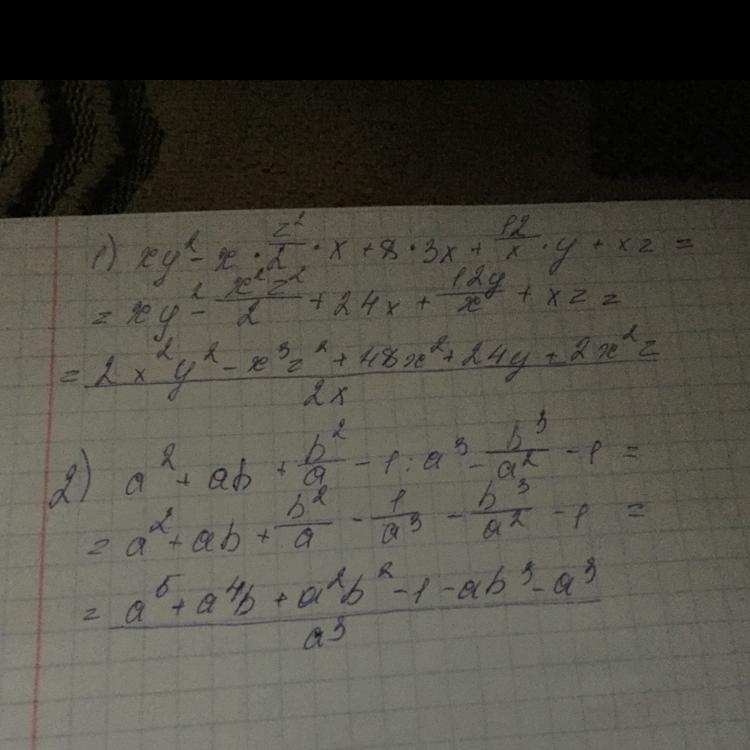 1) xy² - x · z²/2 · x + 8 · 3x + 12/x · y + xz =
= xy² - x²z²/2 + 24x + 12y/x + xz =
= (2x²y² - x³z² + 48x² + 24y + 2x²z)/2x
2) a² + ab + b²/a - 1 : a³ - b³/a² - 1 =
= a² + ab + b²/a - 1/a³ - b³/a² - 1 =
= (a⁵ + a⁴b + a²b² - 1 - ab³ - a³)/a³